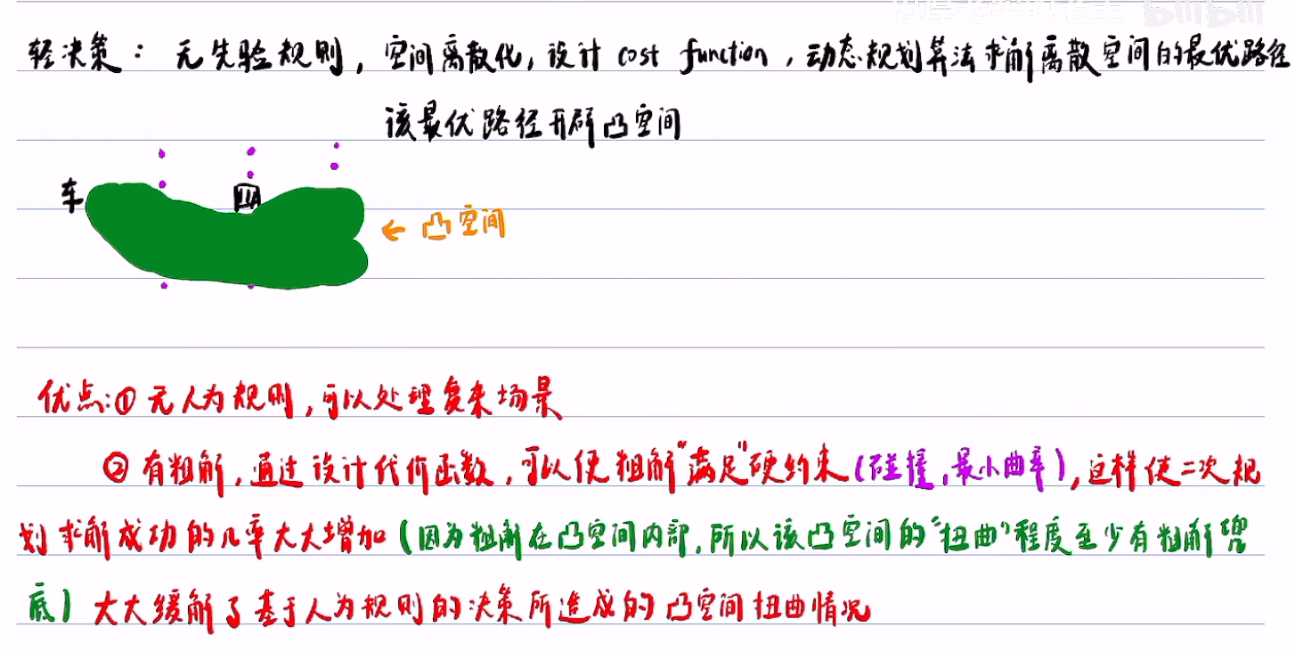 bilibili
轻决策：无先验规则，空间离散化，设计 cost function，动态规划算法求解离散空间的最优路径
该最优路径开辟凸空间
车
← 凸空间
优点:① 无人为规则，可以处理复杂场景
② 有粗解，通过设计代价函数，可以使粗解“满足”硬约束(碰撞，最小曲率)，这样使二次规
划求解成功的几率大大增加(因为粗解在凸空间内部，所以该凸空间的“扭曲”程度至少有粗解兜
底) 大大缓解了基于人为规则的决策所造成的凸空间扭曲情况